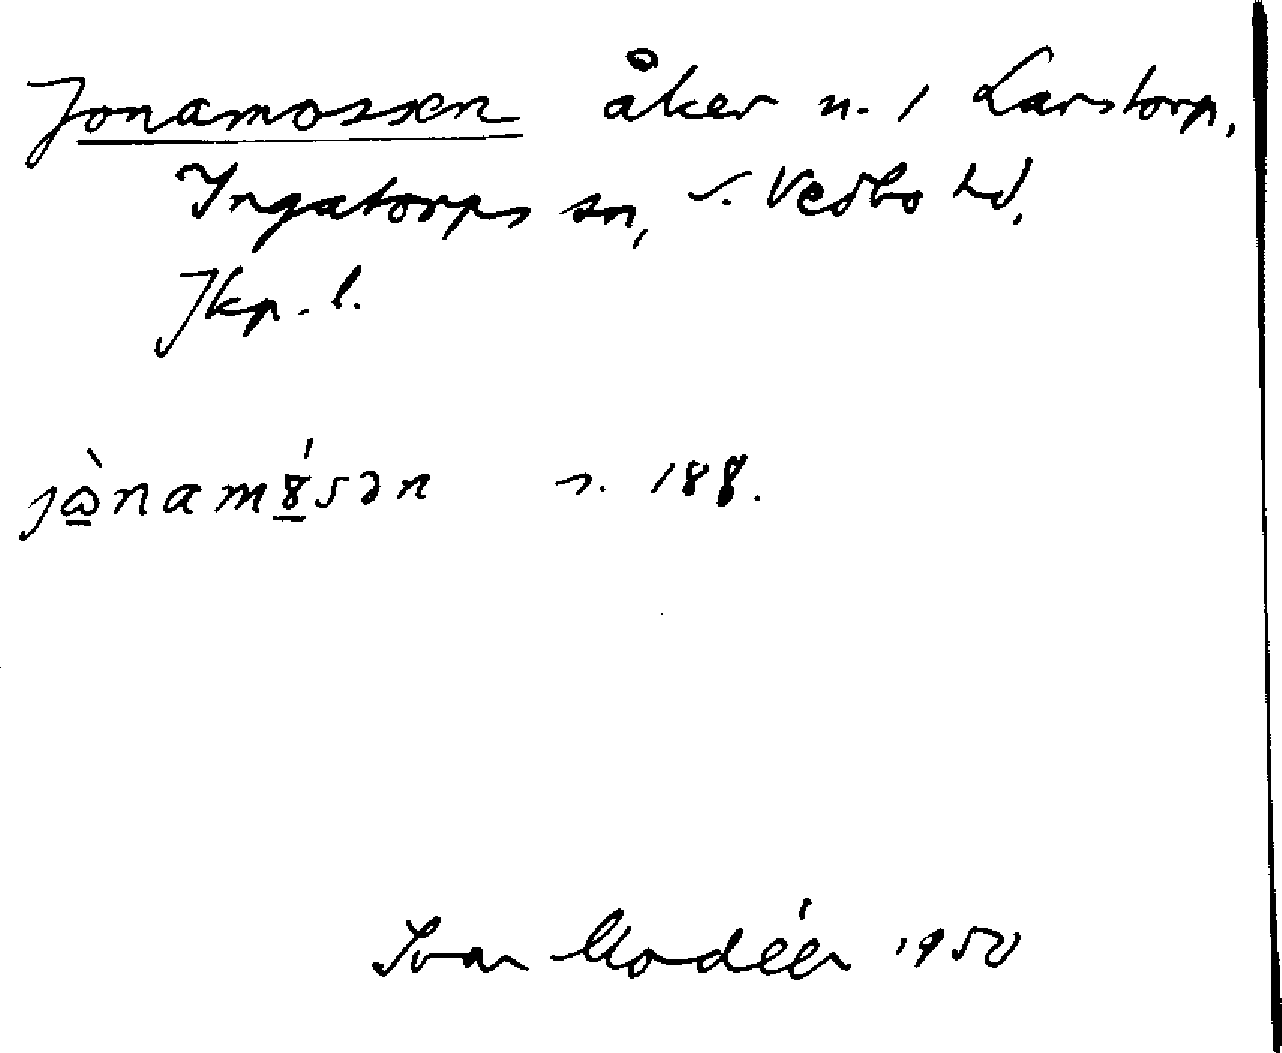 Jonamossen åker n. 1 Larstorp,
Ingatorps sn, S. Vedbo hd,
Jkp. l.
s. 188.
Ivar Modéer 1950